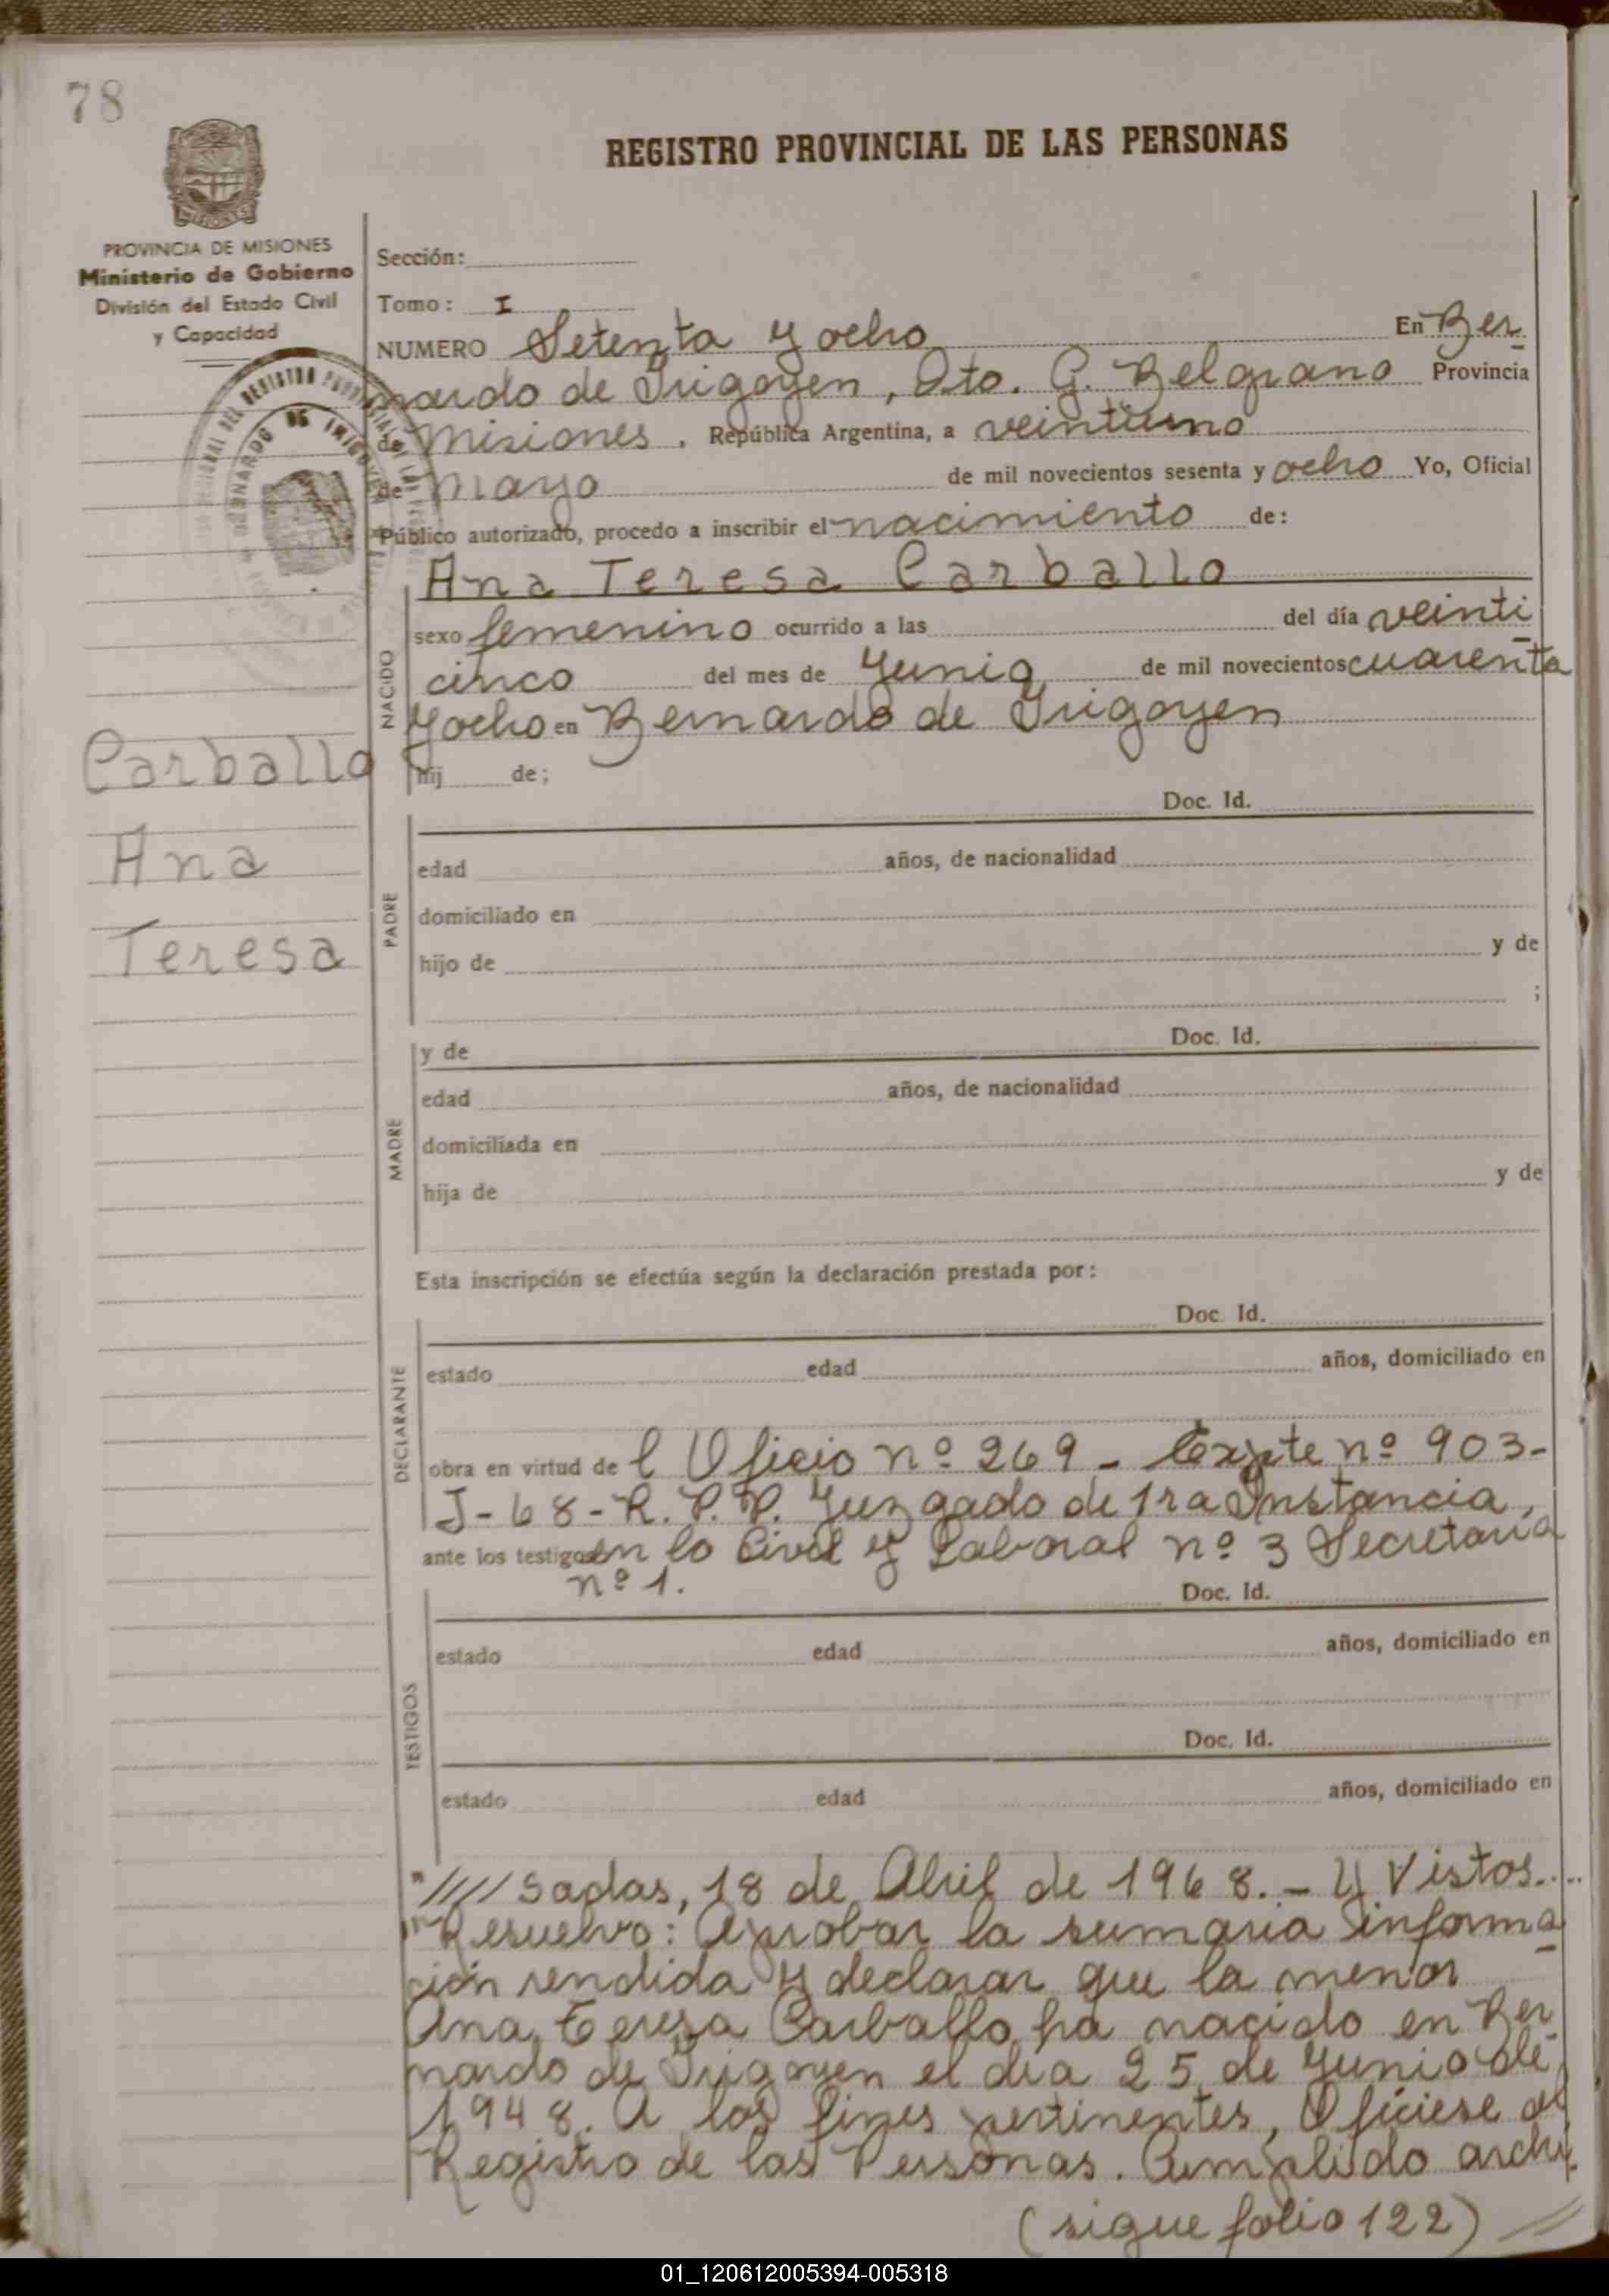 78
REGISTRO PROVINCIAL DE LAS PERSONAS
PROVINCIA DE MISIONES
Ministerio de Gobierno
División del Estado Civil
y Capacidad
Sección:
Tomo: I
NUMERO Setenta y ocho En Ber
nardo de Irigoyen, Dto. G. Belgrano Provincia
de Misiones. República Argentina, a veintiuno
de mayo de mil novecientos sesenta y ocho Yo, Oficial
Público autorizado, procedo a inscribir el nacimiento de:
Ana Teresa Carballo
NACIDO
sexo femenino ocurrido a las del día veinti
cinco del mes de Yunio de mil novecientos cuarenta
y ocho en Bernardo de Irigoyen
hij de;
Carballo
Ana
Teresa
PADRE
Doc. Id.
edad años, de nacionalidad
domiciliado en
hijo de y de
;
MADRE
y de Doc. Id.
edad años, de nacionalidad
domiciliada en
hija de y de
Esta inscripción se efectúa según la declaración prestada por:
DECLARANTE
Doc. Id.
estado edad años, domiciliado en
obra en virtud de l Oficio nº 269 - Expte nº 903-
J-68-R.P.P. Yuzgado de 1ra Instancia,
ante los testigos en lo Civil y Laboral nº 3 Secretaria
nº 1.
TESTIGOS
Doc. Id.
estado edad años, domiciliado en
Doc. Id.
estado edad años, domiciliado en
"//// sadas, 18 de Abril de 1968. - Y Vistos....
"Resuelvo: Aprobar la sumaria informa
ción rendida y declarar que la menor
Ana Teresa Carballo ha nacido en Ber
nardo de Irigoyen el dia 25 de Yunio de
1948. A los fines pertinentes, Ofíciese al
Registro de las Personas. Cumplido archi
(sigue folio 122) //
01_120612005394-005318